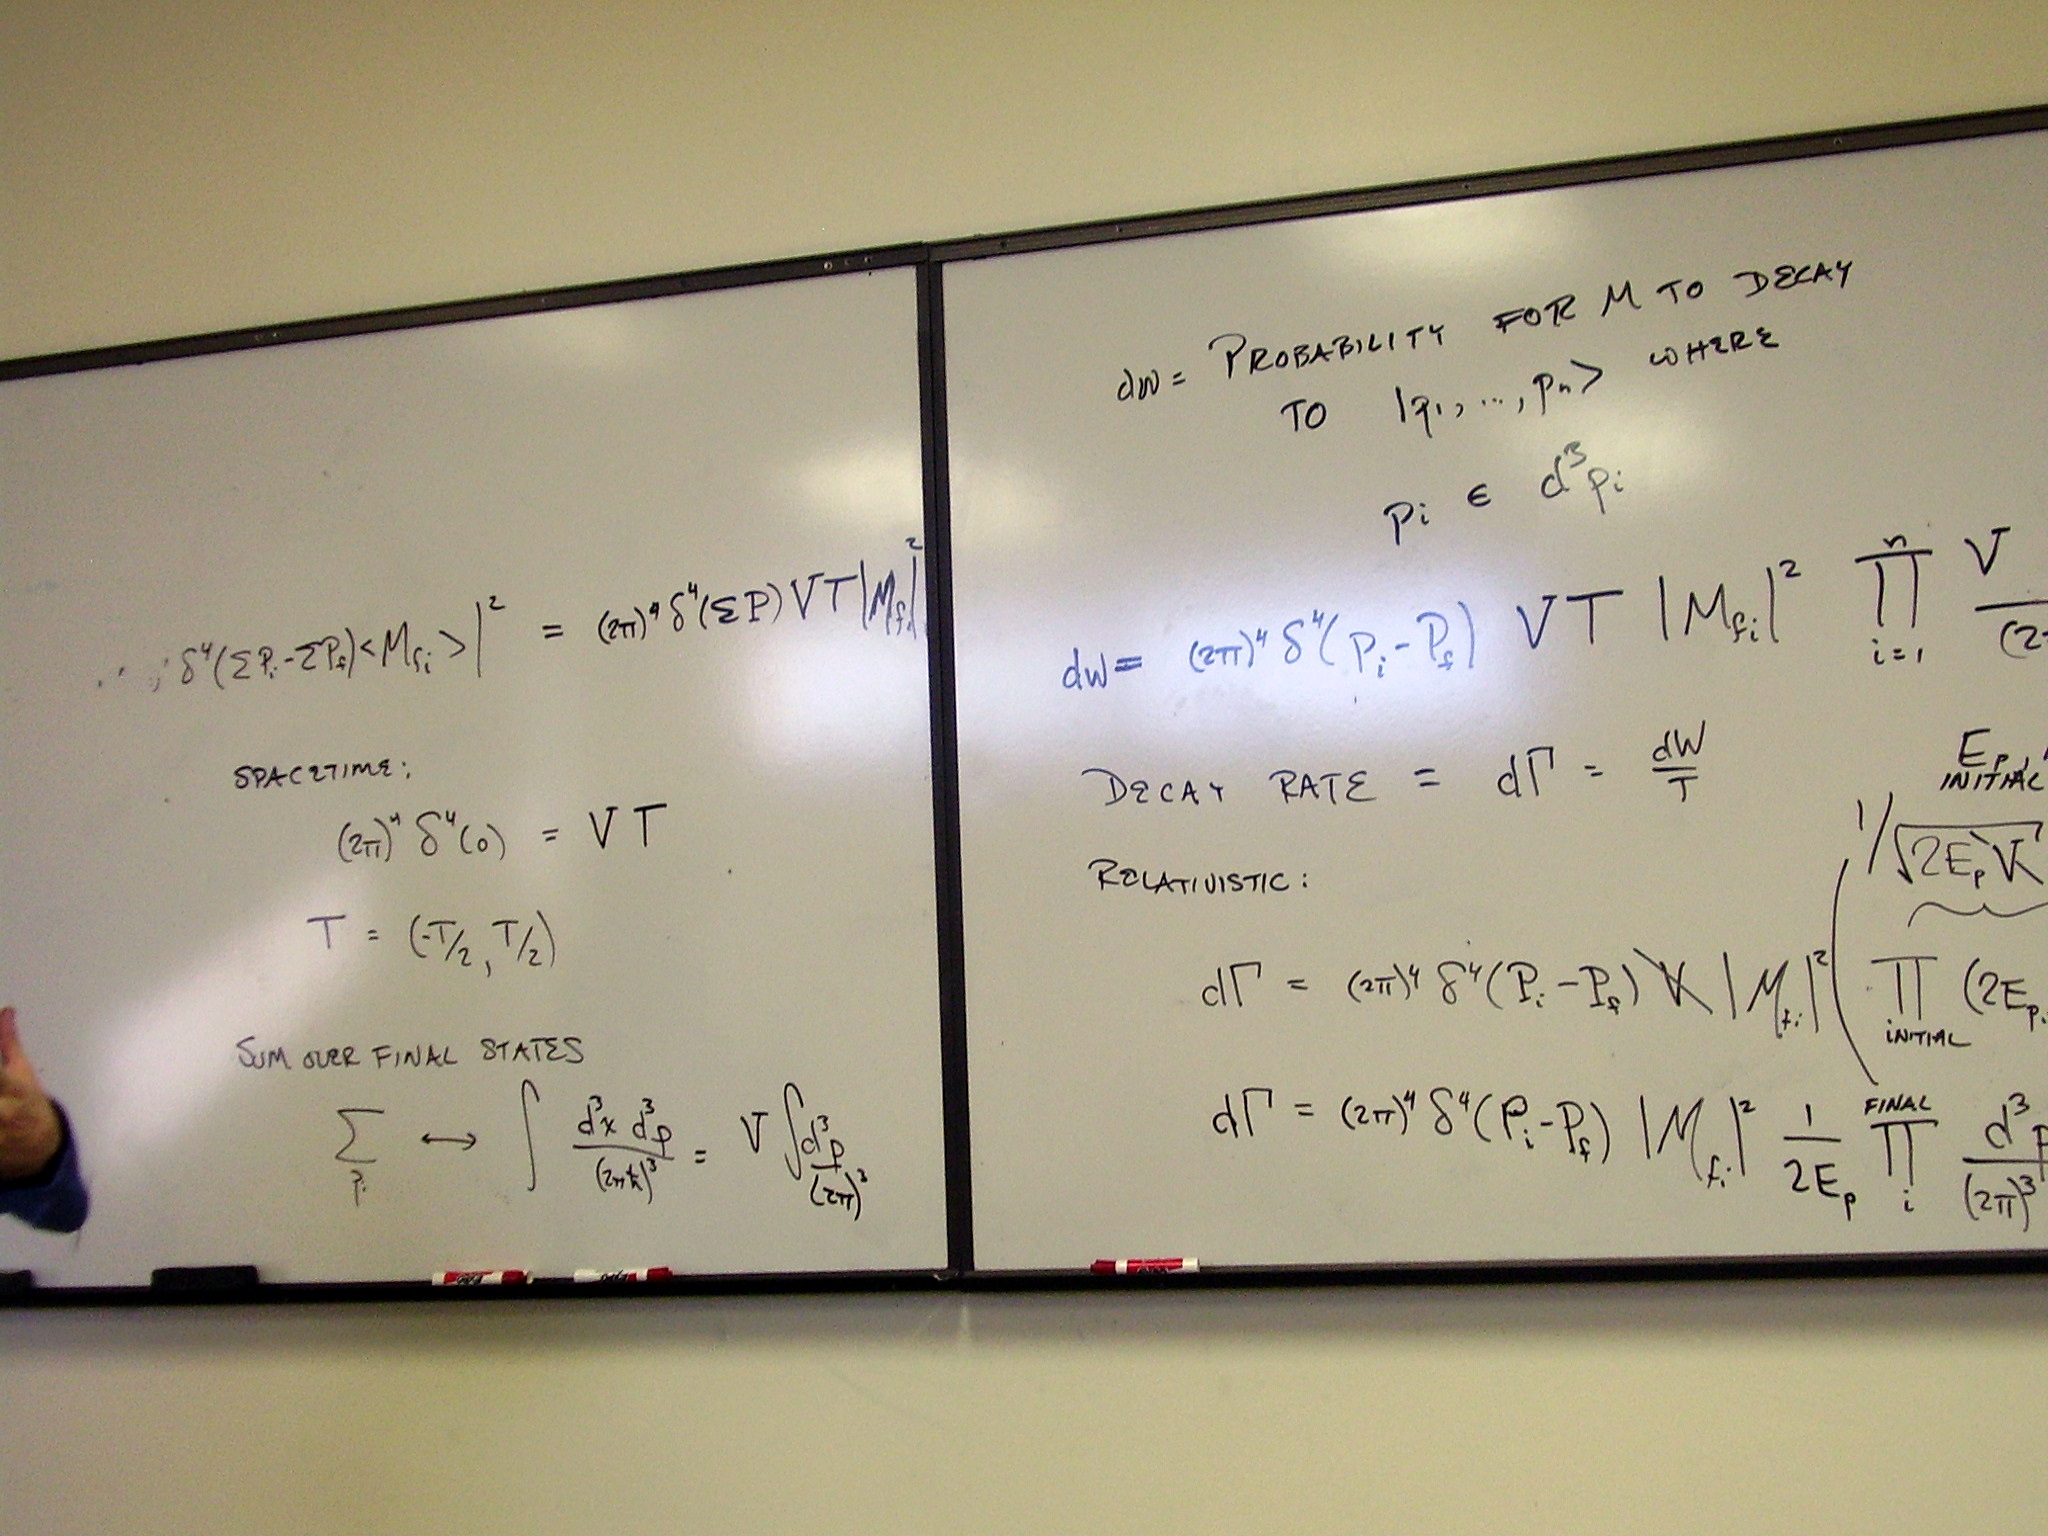 δ⁴(ΣPᵢ-ΣP_f)<M_fi>|² = (2π)⁴ δ⁴(ΣP) VT|M_fi|²
SPACETIME:
(2π)⁴ δ⁴(0) = VT
T = (-T/2, T/2)
SUM OVER FINAL STATES
Σ_pᵢ ↔ ∫ d³x d³p/(2πħ)³ = V∫d³p/(2π)³
dW = PROBABILITY FOR M TO DECAY
TO |p₁, ..., pₙ> WHERE
pᵢ ∈ d³pᵢ
dW = (2π)⁴ δ⁴(Pᵢ-P_f) VT |M_fi|² ∏ⁿ_i=1 V/(2
DECAY RATE = dΓ = dW/T
E_p
INITIAL
RELATIVISTIC:
1/√2E_pV
dΓ = (2π)⁴ δ⁴(Pᵢ-P_f) V |M_fi|² (∏_INITIAL (2E_pᵢ
dΓ = (2π)⁴ δ⁴(Pᵢ-P_f) |M_fi|² 1/2E_p ∏^FINAL_i d³p/(2π)³